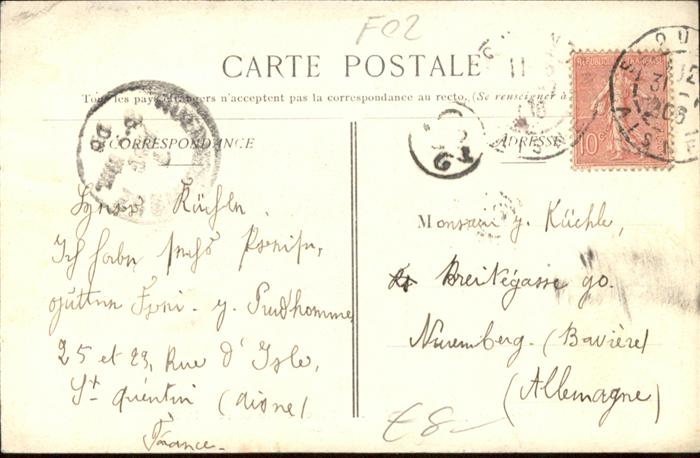 F02
CARTE POSTALE
Tous les pays étrangers n'acceptent pas la correspondance au recto. (Se renseigner à
CORRESPONDANCE
ADRESSE
RÉPUBLIQUE FRANÇAISE
10c
AISNE
Küchln
Ich habn
y. Prudhomme,
25 et 23, Rue d'Isle,
St quentin (aisne)
France.
Monsieur y. Küchle,
Breitegasse 90.
Nuremberg. (Bavière)
(Allemagne)
£8